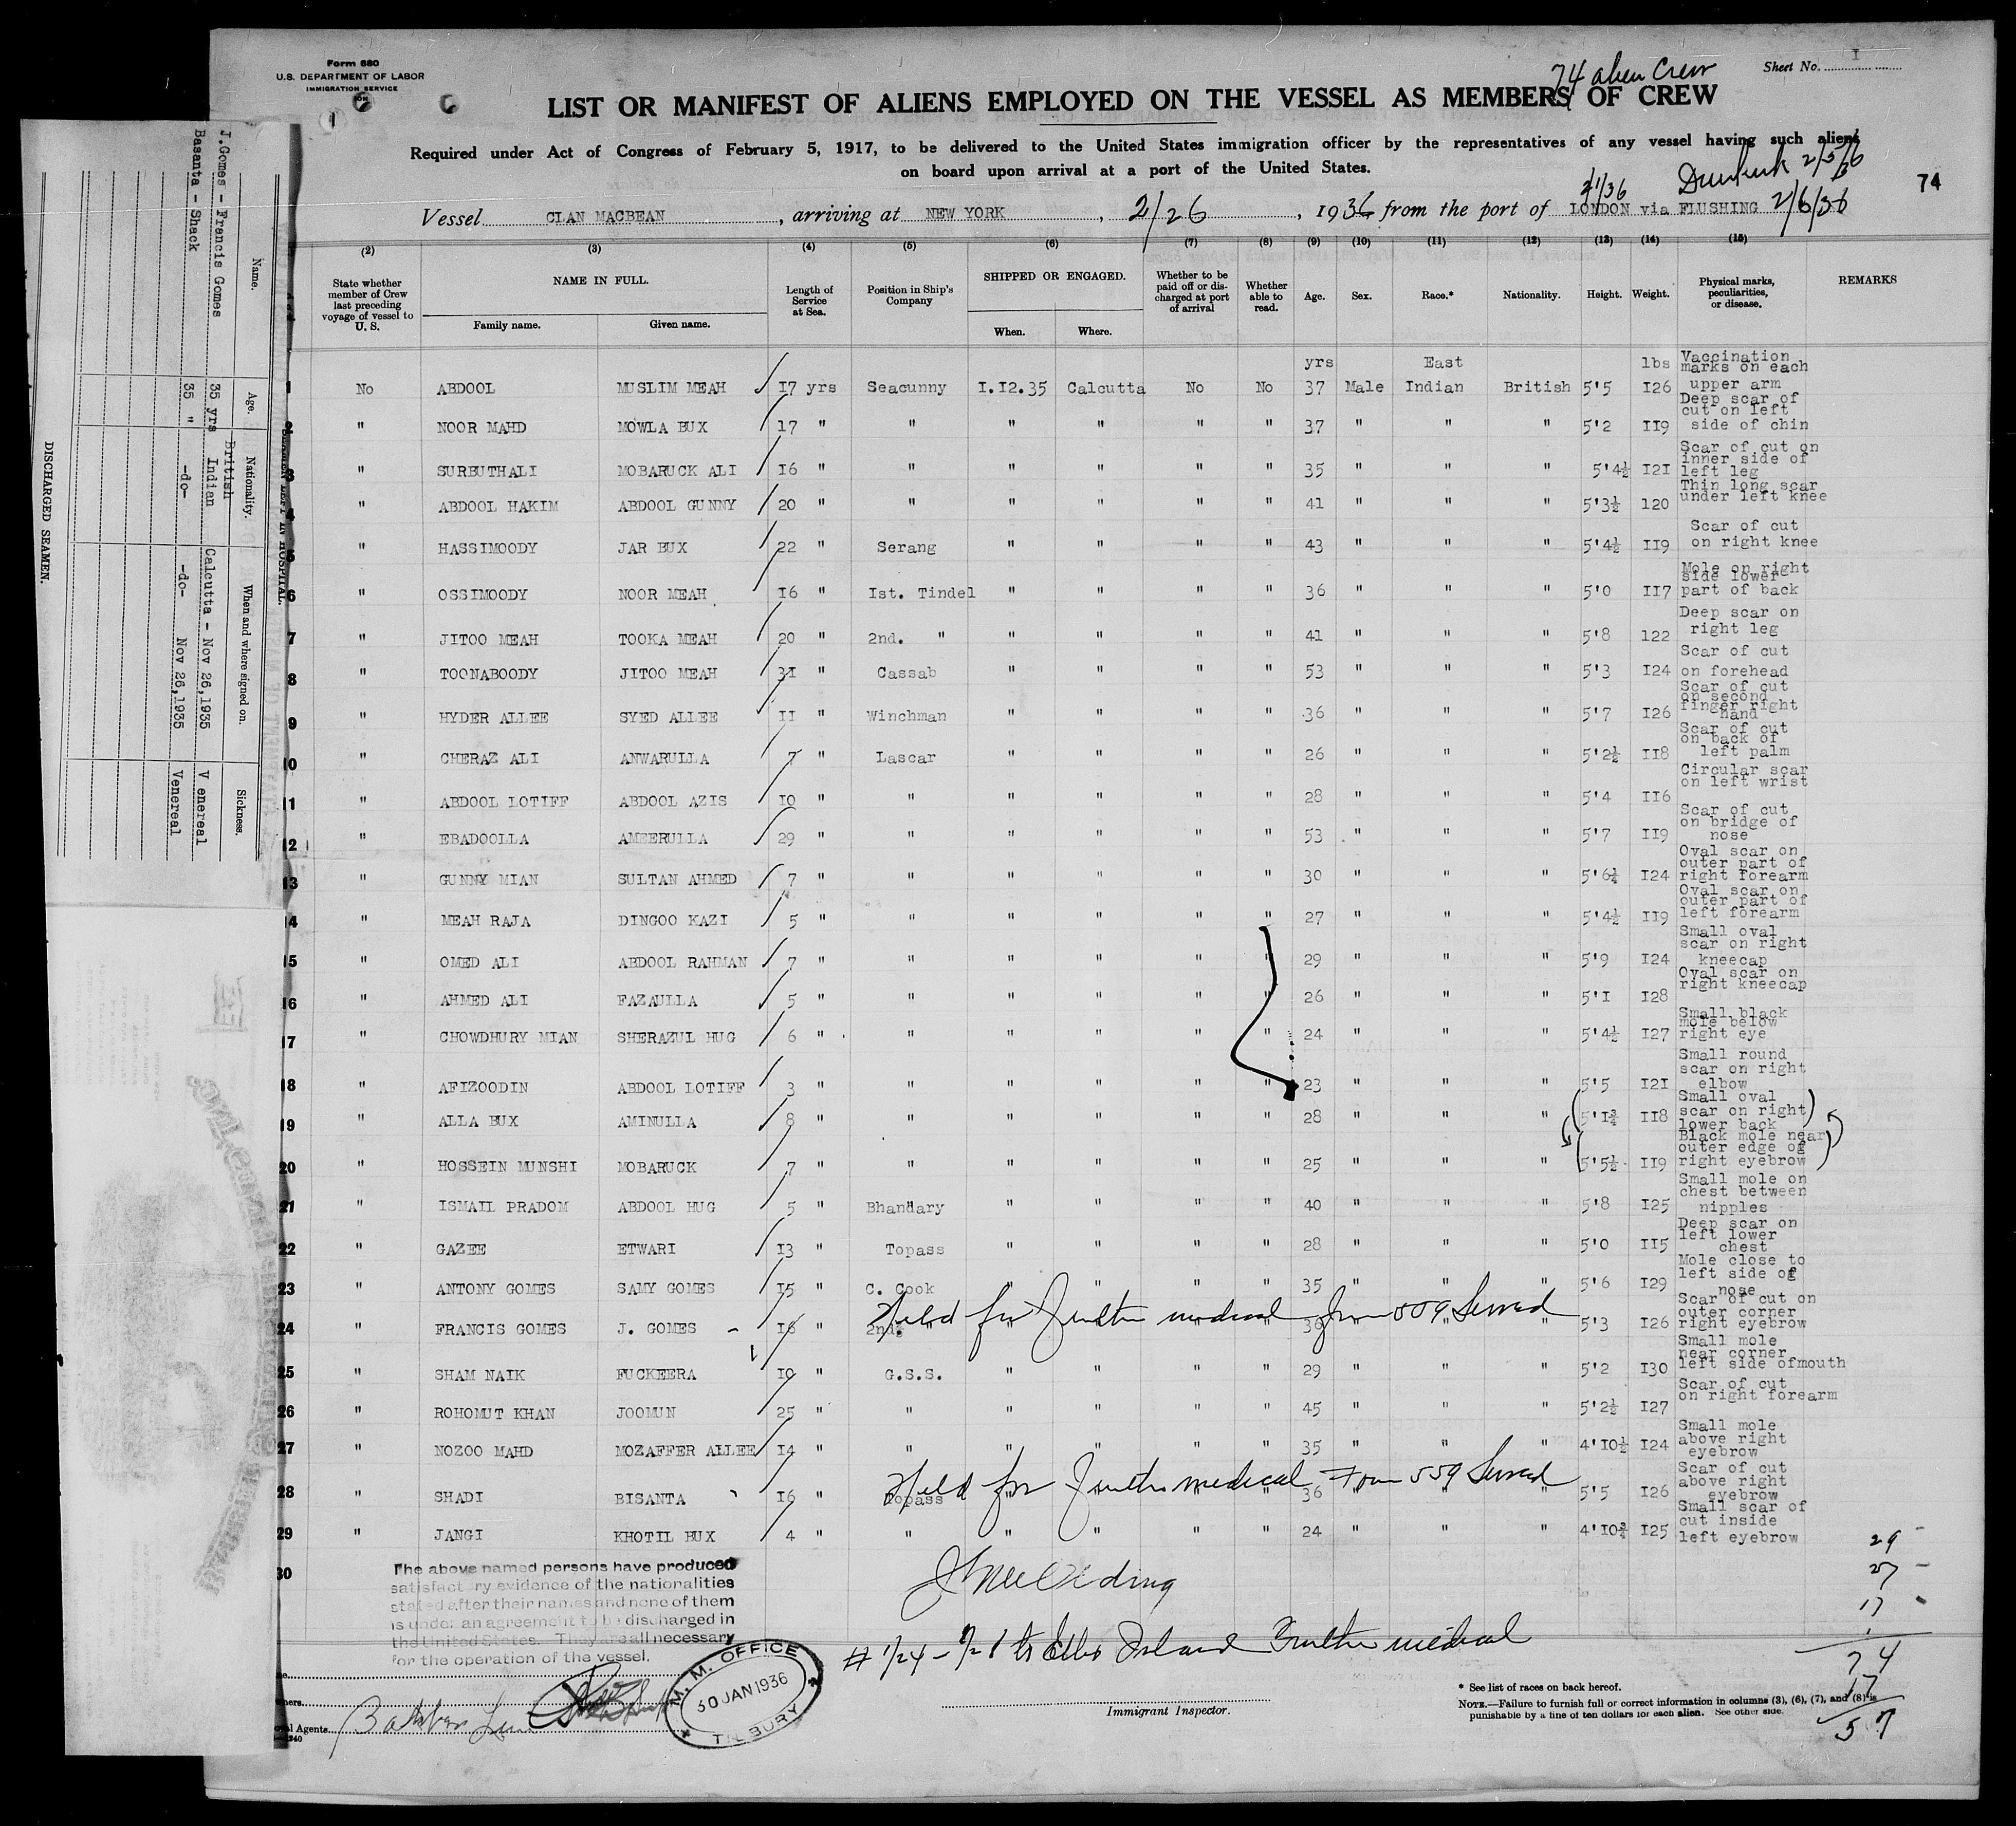 Form 680
U.S. DEPARTMENT OF LABOR
IMMIGRATION SERVICE
74 alien Crew
Sheet No. I
LIST OR MANIFEST OF ALIENS EMPLOYED ON THE VESSEL AS MEMBERS OF CREW
Required under Act of Congress of February 5, 1917, to be delivered to the United States immigration officer by the representatives of any vessel having such aliens
on board upon arrival at a port of the United States.
Dunkirk 2/5/36
74
Vessel CLAN MACBEAN, arriving at NEW YORK, 2/26, 1936 from the port of LONDON via FLUSHING 2/6/36
(2) (3) (4) (5) (6) (7) (8) (9) (10) (11) (12) (13) (14) (15)
State whether member of Crew last preceding voyage of vessel to U. S. NAME IN FULL. Family name. Given name. Length of Service at Sea. Position in Ship's Company SHIPPED OR ENGAGED. When. Where. Whether to be paid off or discharged at port of arrival Whether able to read. Age. Sex. Race.* Nationality. Height. Weight. Physical marks, peculiarities, or disease. REMARKS
1 No ABDOOL MUSLIM MEAH 17 yrs Seacunny I.I2.35 Calcutta No No yrs 37 Male East Indian British 5'5 lbs I26 Vaccination marks on each upper arm
2 " NOOR MAHD MOWLA BUX 17 " " " " " " 37 " " " 5'2 II9 Deep scar of cut on left side of chin
3 " SURBUTHALI MOBARUCK ALI I6 " " " " " " 35 " " " 5'4½ I2I Scar of cut on inner side of left leg
4 " ABDOOL HAKIM ABDOOL GUNNY 20 " " " " " " 41 " " " 5'3½ 120 Thin long scar under left knee
5 " HASSIMOODY JAR BUX 22 " Serang " " " " 43 " " " 5'4½ II9 Scar of cut on right knee
6 " OSSIMOODY NOOR MEAH I6 " Ist. Tindel " " " " 36 " " " 5'0 II7 Mole on right side lower part of back
7 " JITOO MEAH TOOKA MEAH 20 " 2nd. " " " " " 41 " " " 5'8 122 Deep scar on right leg
8 " TOONABOODY JITOO MEAH 3I " Cassab " " " " 53 " " " 5'3 I24 Scar of cut on forehead
9 " HYDER ALLEE SYED ALLEE II " Winchman " " " " 36 " " " 5'7 I26 Scar of cut on second finger right hand
10 " CHERAZ ALI ANWARULLA 7 " Lascar " " " " 26 " " " 5'2½ II8 Scar of cut on back of left palm
11 " ABDOOL LOTIFF ABDOOL AZIS I0 " " " " " " 28 " " " 5'4 II6 Circular scar on left wrist
12 " EBADOOLLA AMEERULLA 29 " " " " " " 53 " " " 5'7 II9 Scar of cut on bridge of nose
13 " GUNNY MIAN SULTAN AHMED 7 " " " " " " 30 " " " I24 Oval scar on outer part of right forearm
14 " MEAH RAJA DINGOO KAZI 5 " " " " " " 27 " " " 5'4½ II9 Oval scar on outer part of left forearm
15 " OMED ALI ABDOOL RAHMAN 7 " " " " " " 29 " " " 5'9 I24 Small oval scar on right kneecap
16 " AHMED ALI FAZAULLA 5 " " " " " " 26 " " " 5'I I28 Oval scar on right kneecap
17 " CHOWDHURY MIAN SHERAZUL HUG 6 " " " " " " 24 " " " 5'4½ I27 Small black mole below right eye
18 " AFIZOODIN ABDOOL LOTIFF 3 " " " " " " 23 " " " 5'5 I2I Small round scar on right elbow
19 " ALLA BUX AMINULLA 8 " " " " " " 28 " " " 5'I¾ II8 Small oval scar on right lower back
20 " HOSSEIN MUNSHI MOBARUCK 7 " " " " " " 25 " " " 5'5½ II9 Black mole near outer edge of right eyebrow
21 " ISMAIL PRADOM ABDOOL HUG 5 " Bhandary " " " " 40 " " " 5'8 I25 Small mole on chest between nipples
22 " GAZEE ETWARI I3 " Topass " " " " 28 " " " 5'0 II5 Deep scar on left lower chest
23 " ANTONY GOMES SAMY GOMES I5 " C. Cook " " " " 35 " " " 5'6 I29 Mole close to left side of nose
24 " FRANCIS GOMES J. GOMES I6 " 2nd. " " " " " 36 " " " 5'3 I26 Scar of cut on outer corner right eyebrow
Held for further medical form 559 Served
25 " SHAM NAIK FUCKEERA I0 " G.S.S. " " " " 29 " " " 5'2 I30 Small mole near corner left side ofmouth
26 " ROHOMUT KHAN JOOMUN 25 " " " " " " 45 " " " 5'2½ I27 Scar of cut on right forearm
27 " NOZOO MAHD MOZAFFER ALLEE I4 " " " " " " 35 " " " 4'I0½ I24 Small mole above right eyebrow
28 " SHADI BISANTA I6 " Topass " " " " 36 " " " 5'5 I26 Scar of cut above right eyebrow
Held for further medical Form 559 Served
29 " JANGI KHOTIL BUX 4 " " " " " " 24 " " " 4'I0¾ I25 Small scar of cut inside left eyebrow
30
The above named persons have produced
satisfactory evidence of the nationalities
stated after their names and none of them
is under an agreement to be discharged in
the United States. They are all necessary
for the operation of the vessel.
# 1/24 - 1/28 to Ellis Island Further medical
M. M. OFFICE
30 JAN 1936
TILBURY
Immigrant Inspector.
* See list of races on back hereof.
NOTE.—Failure to furnish full or correct information in columns (3), (6), (7), and (8) is
punishable by a fine of ten dollars for each alien. See other side.
29
27
17
1
74
17
57
DISCHARGED SEAMEN.
Name. Age. Nationality. When and where signed on. Sickness.
J.Gomes - Francis Gomes 35 yrs British Indian Calcutta - Nov 26,1935 V enereal
Basanta - Shack 35 " -do- -do- Nov 26,1935 Venereal